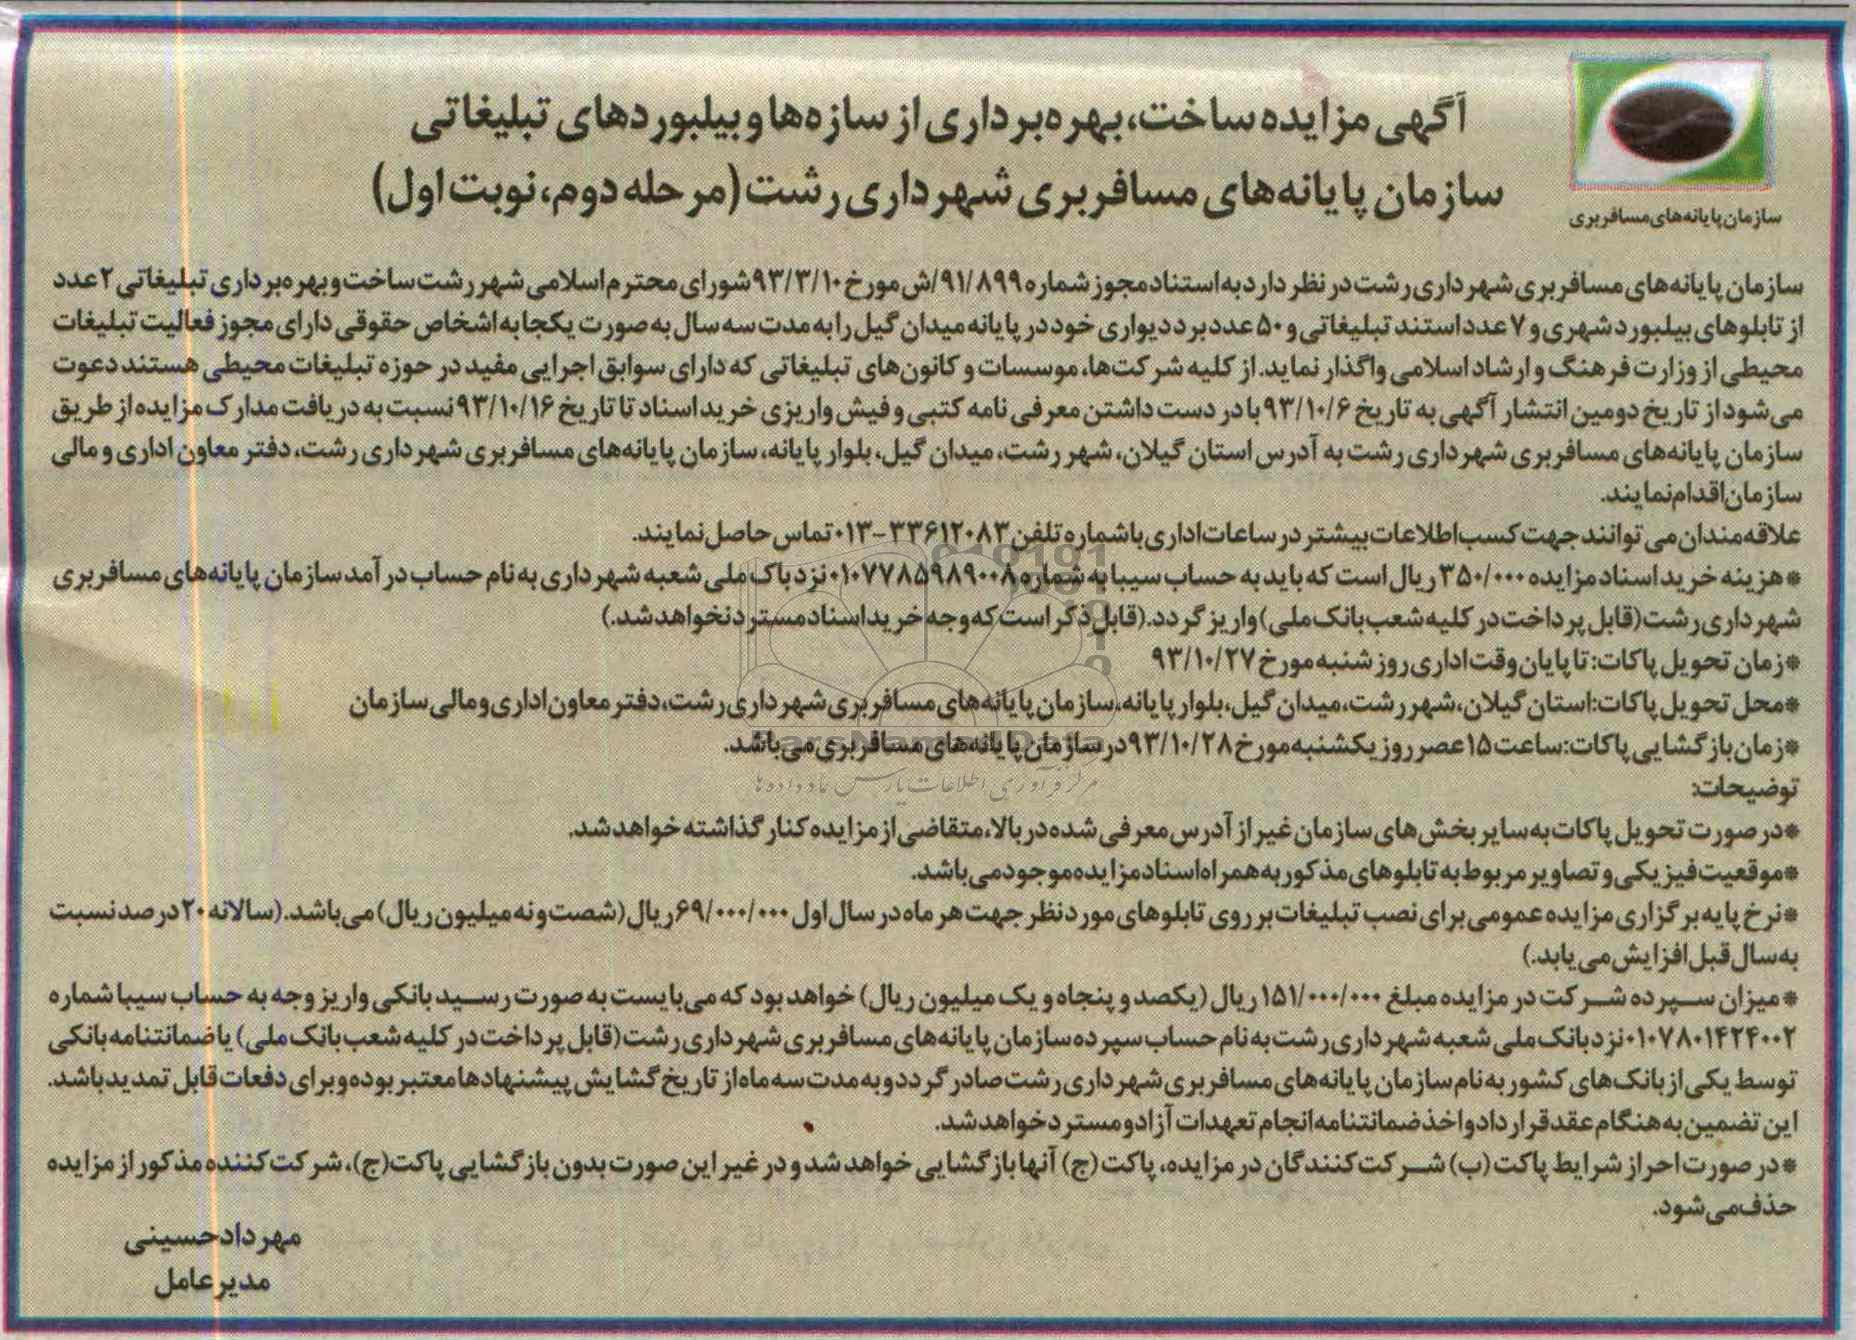 آگهی مزایده ساخت، بهره‌برداری از سازه‌ها و بیلبوردهای تبلیغاتی
سازمان پایانه‌های مسافربری شهرداری رشت (مرحله دوم، نوبت اول)
سازمان پایانه‌های مسافربری
سازمان پایانه‌های مسافربری شهرداری رشت در نظر دارد به استناد مجوز شماره ۹۱/۸۹۹/ش مورخ ۹۳/۳/۱۰ شورای محترم اسلامی شهر رشت ساخت و بهره‌برداری تبلیغاتی ۲ عدد
از تابلوهای بیلبورد شهری و ۷ عدد استند تبلیغاتی و ۵۰ عدد برد دیواری خود در پایانه میدان گیل را به مدت سه سال به صورت یکجا به اشخاص حقوقی دارای مجوز فعالیت تبلیغات
محیطی از وزارت فرهنگ و ارشاد اسلامی واگذار نماید. از کلیه شرکت‌ها، موسسات و کانون‌های تبلیغاتی که دارای سوابق اجرایی مفید در حوزه تبلیغات محیطی هستند دعوت
می‌شود از تاریخ دومین انتشار آگهی به تاریخ ۹۳/۱۰/۶ با در دست داشتن معرفی نامه کتبی و فیش واریزی خرید اسناد تا تاریخ ۹۳/۱۰/۱۶ نسبت به دریافت مدارک مزایده از طریق
سازمان پایانه‌های مسافربری شهرداری رشت به آدرس استان گیلان، شهر رشت، میدان گیل، بلوار پایانه، سازمان پایانه‌های مسافربری شهرداری رشت، دفتر معاون اداری و مالی
سازمان اقدام نمایند.
علاقه‌مندان می توانند جهت کسب اطلاعات بیشتر در ساعات اداری با شماره تلفن ۳۳۶۱۲۰۸۳-۰۱۳ تماس حاصل نمایند.
*هزینه خرید اسناد مزایده ۳۵۰/۰۰۰ ریال است که باید به حساب سیبا به شماره ۰۱۰۷۷۸۵۹۸۹۰۰۸ نزد باک ملی شعبه شهرداری به نام حساب درآمد سازمان پایانه‌های مسافربری
شهرداری رشت (قابل پرداخت در کلیه شعب بانک ملی) واریز گردد. (قابل ذکر است که وجه خرید اسناد مسترد نخواهد شد.)
*زمان تحویل پاکات: تا پایان وقت اداری روز شنبه مورخ ۹۳/۱۰/۲۷
*محل تحویل پاکات: استان گیلان، شهر رشت، میدان گیل، بلوار پایانه، سازمان پایانه‌های مسافربری شهرداری رشت، دفتر معاون اداری و مالی سازمان
*زمان بازگشایی پاکات: ساعت ۱۵ عصر روز یکشنبه مورخ ۹۳/۱۰/۲۸ در سازمان پایانه‌های مسافربری می‌باشد.
ParsNamadData
مرکز فرآوری اطلاعات پارس نماد داده ها
توضیحات:
*در صورت تحویل پاکات به سایر بخش‌های سازمان غیر از آدرس معرفی شده در بالا، متقاضی از مزایده کنار گذاشته خواهد شد.
*موقعیت فیزیکی و تصاویر مربوط به تابلوهای مذکور به همراه اسناد مزایده موجود می‌باشد.
*نرخ پایه برگزاری مزایده عمومی برای نصب تبلیغات بر روی تابلوهای مورد نظر جهت هر ماه در سال اول ۶۹/۰۰۰/۰۰۰ ریال (شصت و نه میلیون ریال) می‌باشد. (سالانه ۲۰ درصد نسبت
به سال قبل افزایش می‌یابد.)
*میزان سپرده شرکت در مزایده مبلغ ۱۵۱/۰۰۰/۰۰۰ ریال (یکصد و پنجاه و یک میلیون ریال) خواهد بود که می‌بایست به صورت رسید بانکی واریز وجه به حساب سیبا شماره
۰۱۰۷۸۰۱۴۲۴۰۰۲ نزد بانک ملی شعبه شهرداری رشت به نام حساب سپرده سازمان پایانه‌های مسافربری شهرداری رشت (قابل پرداخت در کلیه شعب بانک ملی) یا ضمانتنامه بانکی
توسط یکی از بانک‌های کشور به نام سازمان پایانه‌های مسافربری شهرداری رشت صادر گردد و به مدت سه ماه از تاریخ گشایش پیشنهادها معتبر بوده و برای دفعات قابل تمدید باشد.
این تضمین به هنگام عقد قرارداد و اخذ ضمانتنامه انجام تعهدات آزاد و مسترد خواهد شد.
*در صورت احراز شرایط پاکت (ب) شرکت کنندگان در مزایده، پاکت (ج) آنها بازگشایی خواهد شد و در غیر این صورت بدون بازگشایی پاکت (ج)، شرکت کننده مذکور از مزایده
حذف می‌شود.
مهرداد حسینی
مدیرعامل